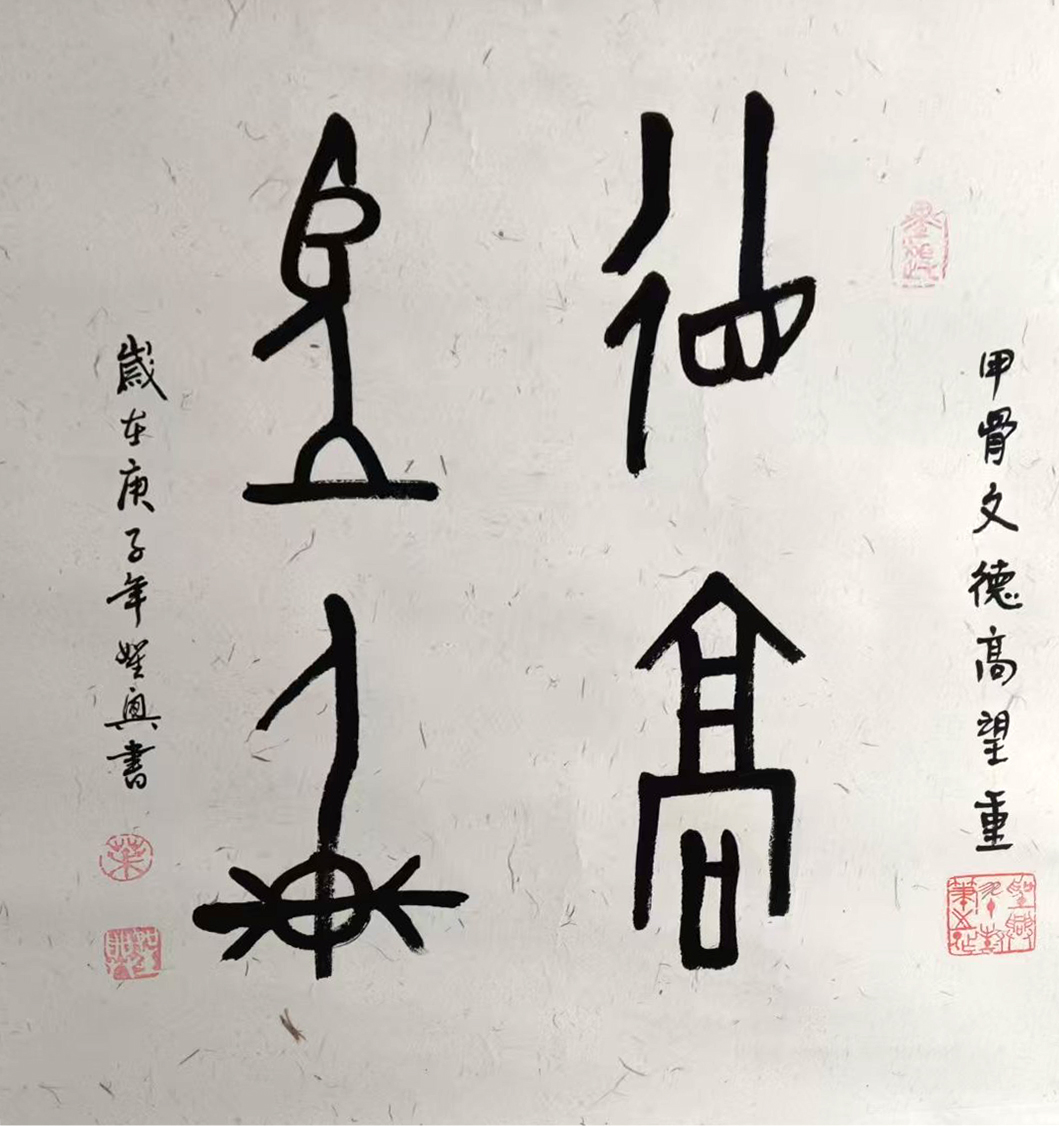 甲骨文德高望重
德高
望重
歲在庚子年聖興書